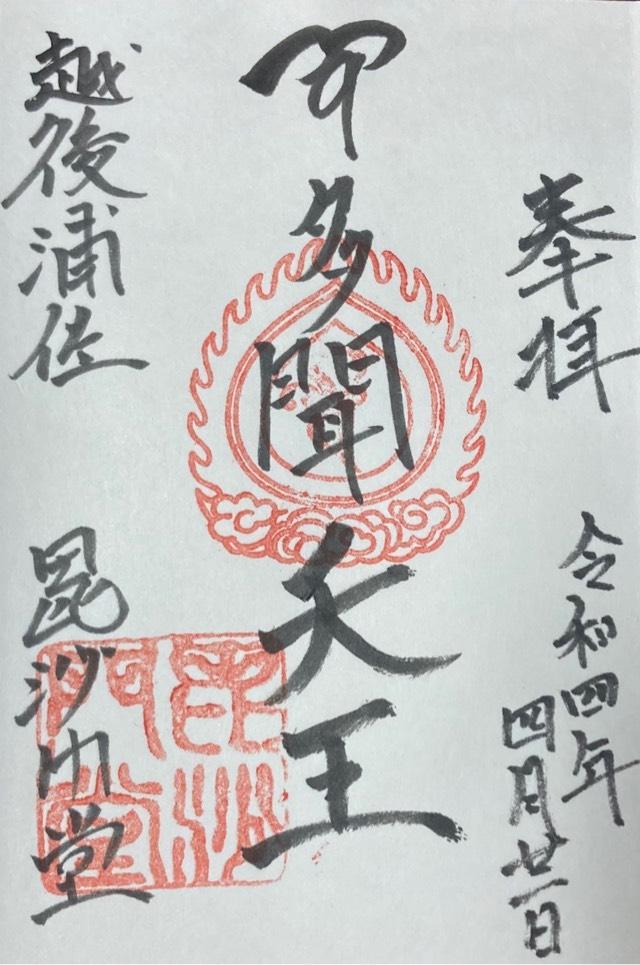 奉拝
令和四年
四月廿一日
多聞天王
越後浦佐
毘沙門堂
毘沙門堂